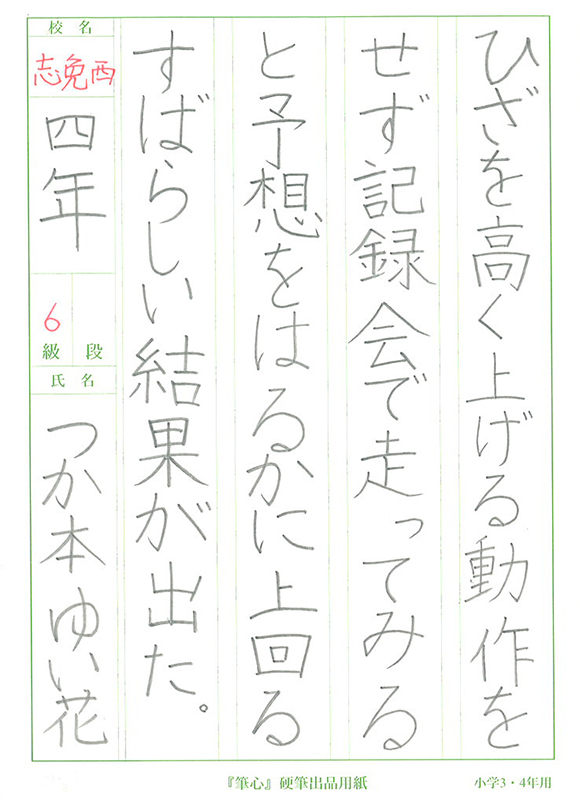 ひざを高く上げる動作を
せず記録会で走ってみる
と予想をはるかに上回る
すばらしい結果が出た。
校名
志免西
四年
6
級段
氏名
つか本ゆい花
『筆心』硬筆出品用紙
小学3・4年用